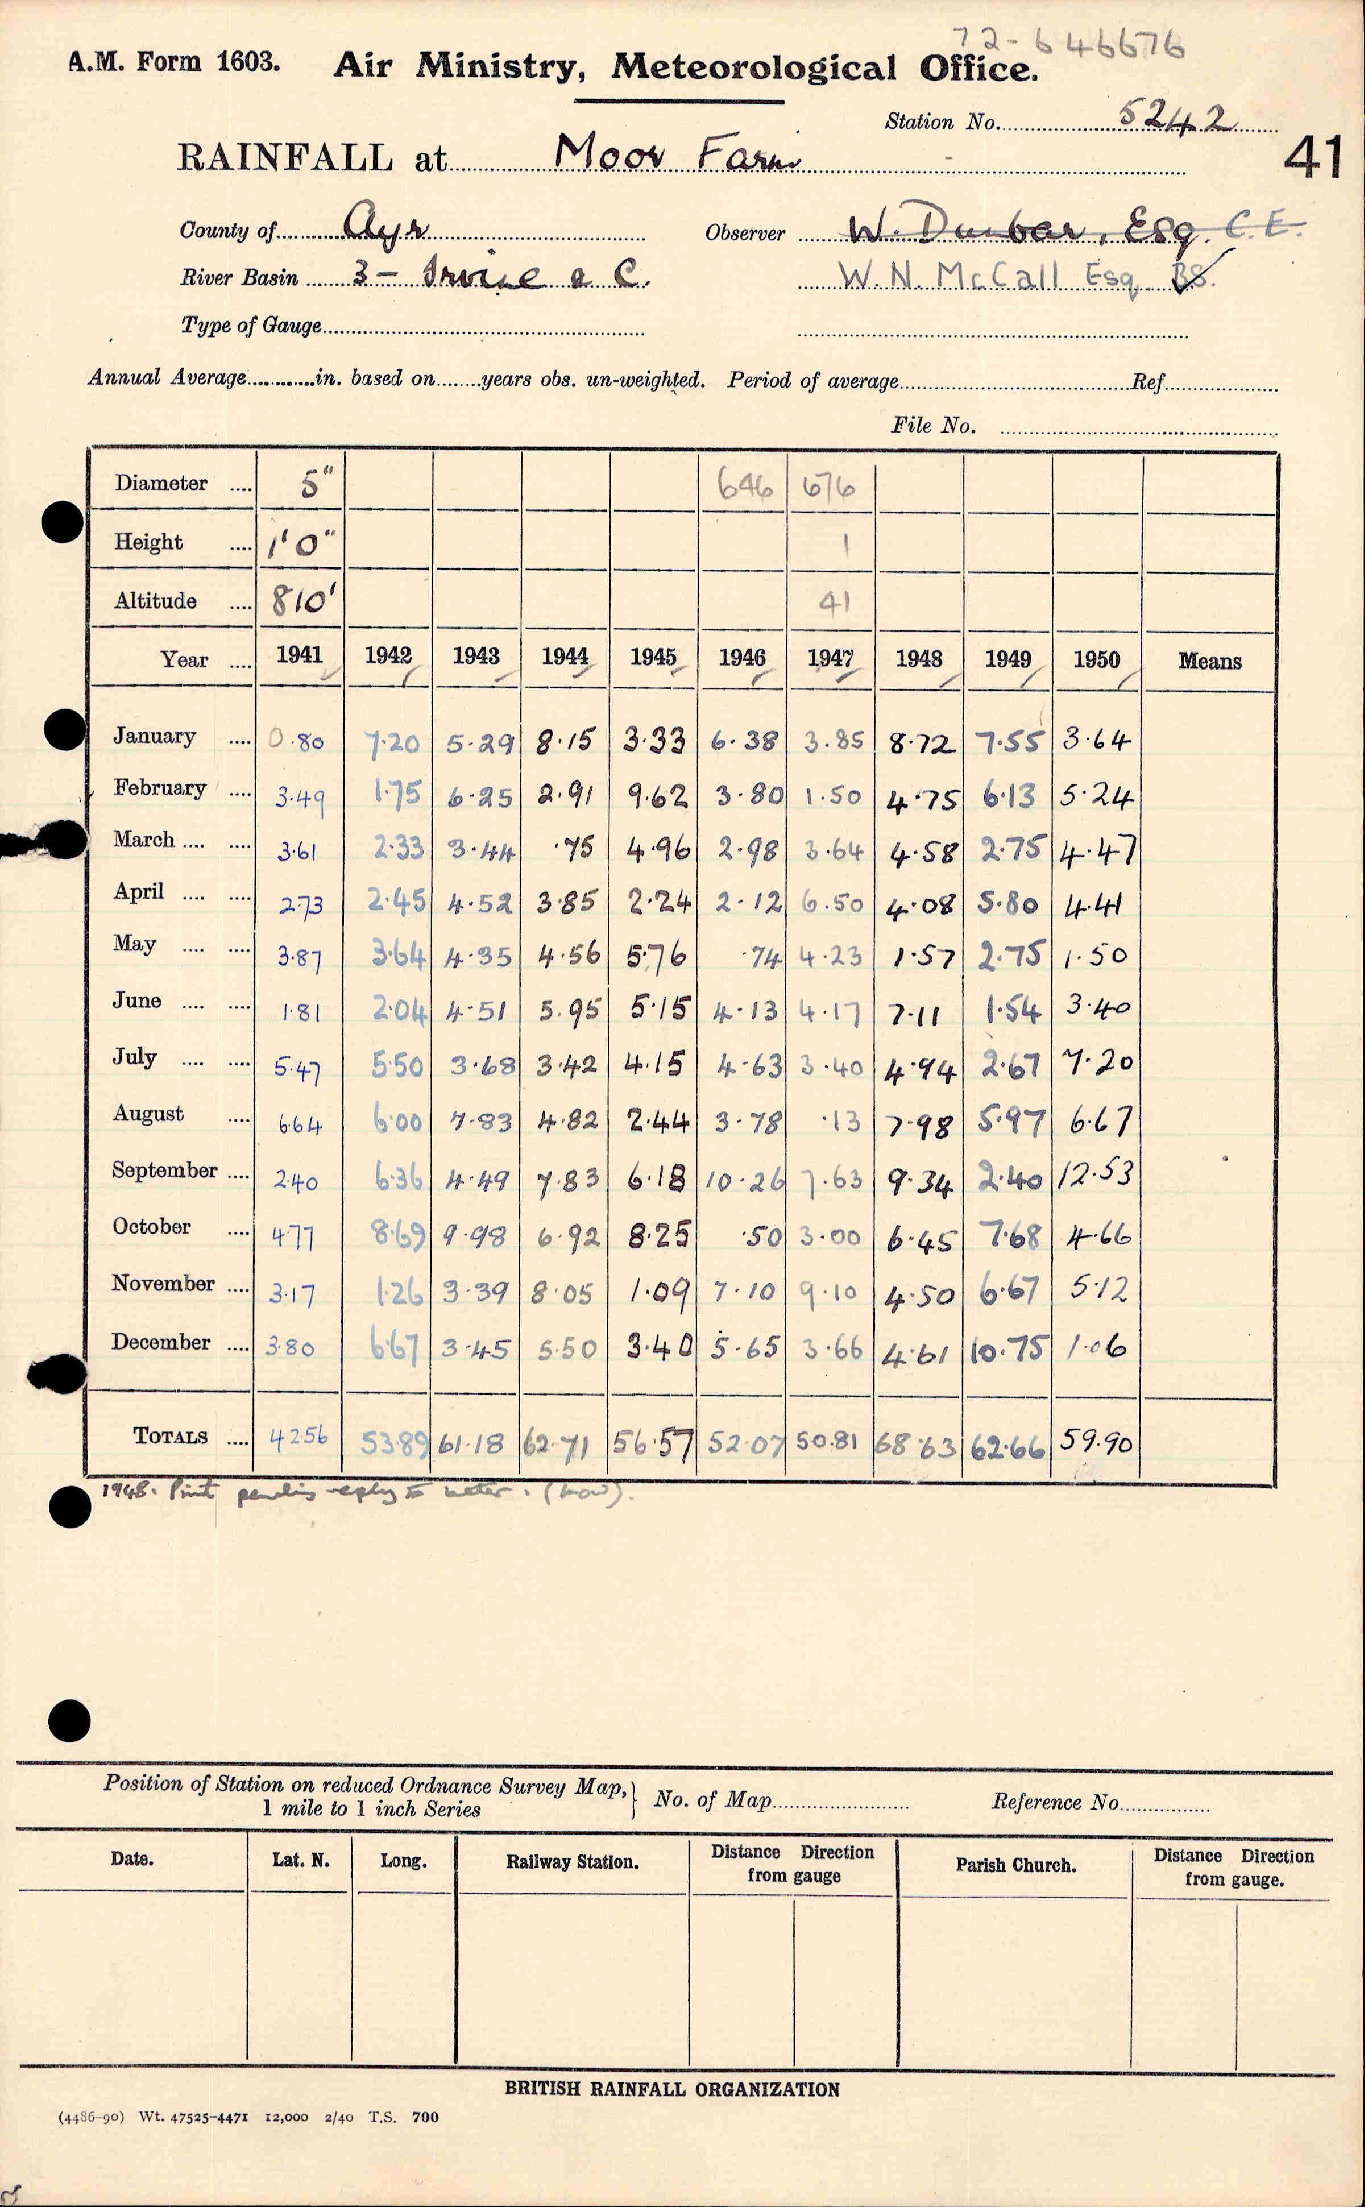 72-646676
A.M. Form 1603. Air Ministry, Meteorological Office.
Station No. 5242
RAINFALL at Moor Farm 41
County of Ayr Observer W. Dunbar, Esq. C.E.
River Basin 3 - Irvine & C. W.N. McCall Esq. BS.
Type of Gauge
Annual Average in. based on years obs. un-weighted. Period of average Ref
File No.
Diameter .... 5" 646 676
Height .... 1'0" 1
Altitude .... 810' 41
Year .... 1941 1942 1943 1944 1945 1946 1947 1948 1949 1950 Means
January .... 0.80 7.20 5.29 8.15 3.33 6.38 3.85 8.72 7.55 3.64
February .... 3.49 1.75 6.25 2.91 9.62 3.80 1.50 4.75 6.13 5.24
March .... .... 3.61 2.33 3.44 .75 4.96 2.98 3.64 4.58 2.75 4.47
April .... .... 2.73 2.45 4.52 3.85 2.24 2.12 6.50 4.08 5.80 4.41
May .... .... 3.87 3.64 4.35 4.56 5.76 .74 4.23 1.57 2.75 1.50
June .... .... 1.81 2.04 4.51 5.95 5.15 4.13 4.17 7.11 1.54 3.40
July .... .... 5.47 5.50 3.68 3.42 4.15 4.63 3.40 4.94 2.67 7.20
August .... 6.64 6.00 7.83 4.82 2.44 3.78 .13 7.98 5.97 6.67
September .... 2.40 6.36 4.49 7.83 6.18 10.26 7.63 9.34 2.40 12.53
October .... 4.77 8.69 9.98 6.92 8.25 .50 3.00 6.45 7.68 4.66
November .... 3.17 1.26 3.39 8.05 1.09 7.10 9.10 4.50 6.67 5.12
December .... 3.80 6.67 3.45 5.50 3.40 5.65 3.66 4.61 10.75 1.06
TOTALS .... 42.56 53.89 61.18 62.71 56.57 52.07 50.81 68.63 62.66 59.90
1948. Print pending reply to letter. (snow).
Position of Station on reduced Ordnance Survey Map,} No. of Map Reference No.
1 mile to 1 inch Series
Date. Lat. N. Long. Railway Station. Distance Direction from gauge Parish Church. Distance Direction from gauge.
BRITISH RAINFALL ORGANIZATION
(4486-90) Wt. 47525-4471 12,000 2/40 T.S. 700